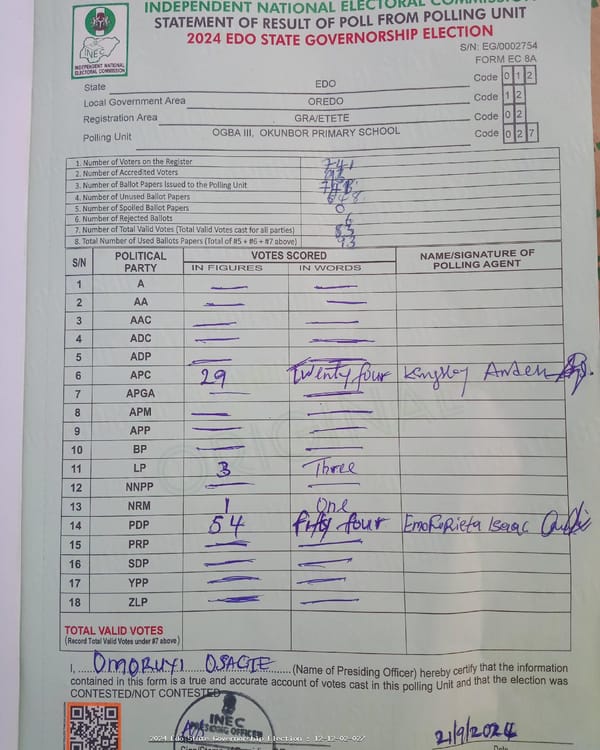 INDEPENDENT NATIONAL ELECTORAL COMMISSION
STATEMENT OF RESULT OF POLL FROM POLLING UNIT
2024 EDO STATE GOVERNORSHIP ELECTION
INEC
INDEPENDENT NATIONAL ELECTORAL COMMISSION
S/N: EG/0002754
FORM EC 8A
State EDO Code 0 1 2
Local Government Area OREDO Code 1 2
Registration Area GRA/ETETE Code 0 2
Polling Unit OGBA III, OKUNBOR PRIMARY SCHOOL Code 0 2 7
1. Number of Voters on the Register 741
2. Number of Accredited Voters
3. Number of Ballot Papers Issued to the Polling Unit
4. Number of Unused Ballot Papers 648
5. Number of Spoiled Ballot Papers 0
6. Number of Rejected Ballots 6
7. Number of Total Valid Votes (Total Valid Votes cast for all parties)
8. Total Number of Used Ballots Papers (Total of #5 + #6 + #7 above) 93
S/N POLITICAL PARTY VOTES SCORED NAME/SIGNATURE OF POLLING AGENT
IN FIGURES IN WORDS
1 A
2 AA
3 AAC
4 ADC
5 ADP
6 APC 29 Twenty four Kingsley
7 APGA
8 APM
9 APP
10 BP
11 LP 3 Three
12 NNPP
13 NRM 1 One
14 PDP 54 fifty four Isaac
15 PRP
16 SDP
17 YPP
18 ZLP
TOTAL VALID VOTES
(Record Total Valid Votes under #7 above)
I, OMORUYI OSAGIE (Name of Presiding Officer) hereby certify that the information
contained in this form is a true and accurate account of votes cast in this polling Unit and that the election was
CONTESTED/NOT CONTESTED
INEC
PRESIDING OFFICER
21/9/2024
2024 Edo State Governorship Election : 12-12-02-027